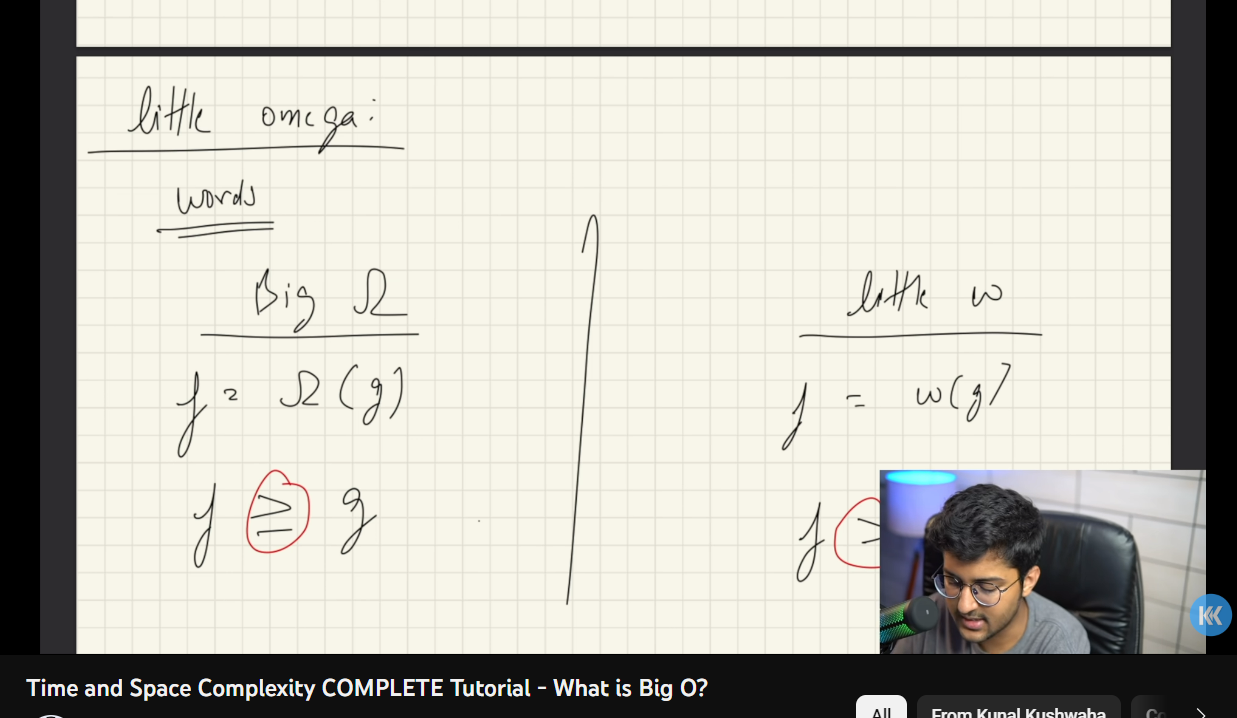 little omega:
words
Big Ω
f = Ω(g)
f ≥ g
little w
f = w(g)
f >
KK
Time and Space Complexity COMPLETE Tutorial - What is Big O?
All
From Kunal Kushwaha